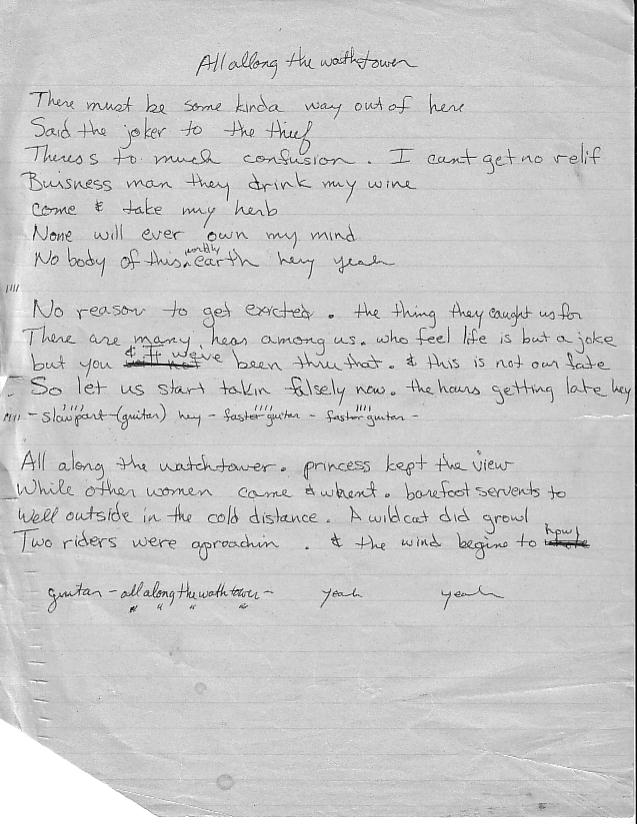 All allong the wathtower
There must be some kinda way out of here
Said the joker to the thief
Theres to much confusion. I cant get no relif
Buisness man they drink my wine
come & take my herb
None will ever own my mind
No body of this worldly earth hey yeah
No reason to get exicted. the thing they caught us for
There are many hear among us. who feel life is but a joke
but you & I we've been thru that. & this is not our fate
So let us start talkin falsely now. the hours getting late hey
- slow part - (guitar) hey - faster guitar - faster guitar -
All along the watchtower. princess kept the view
While other women came & whent. barefoot servents to
Well outside in the cold distance. A wildcat did growl
Two riders were aproachin. & the wind begine to howl
guitar - all along the wathtower - yeah yeah